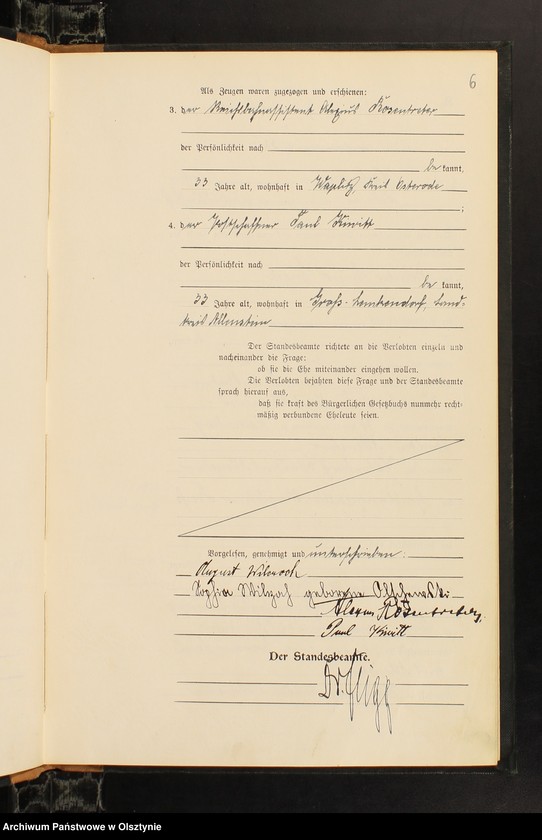 6
Als Zeugen waren zugezogen und erschienen:
3. der Reichsbahnassistent Alexius Rosentreter
der Persönlichkeit nach
be kannt,
33 Jahre alt, wohnhaft in Waplitz, Kreis Osterode
;
4. der Postschaffner Paul Kiwitt
der Persönlichkeit nach
be kannt,
33 Jahre alt, wohnhaft in Groß-Lemkendorf, Land-
kreis Allenstein
Der Standesbeamte richtete an die Verlobten einzeln und
nacheinander die Frage:
ob sie die Ehe miteinander eingehen wollen.
Die Verlobten bejahten diese Frage und der Standesbeamte
sprach hierauf aus,
daß sie kraft des Bürgerlichen Gesetzbuchs nunmehr recht-
mäßig verbundene Eheleute seien.
Vorgelesen, genehmigt und unterschrieben.
August
Sophia geborene Olschewski
Rosentreter
Paul Kiwitt
Der Standesbeamte.
Dr.
Archiwum Państwowe w Olsztynie